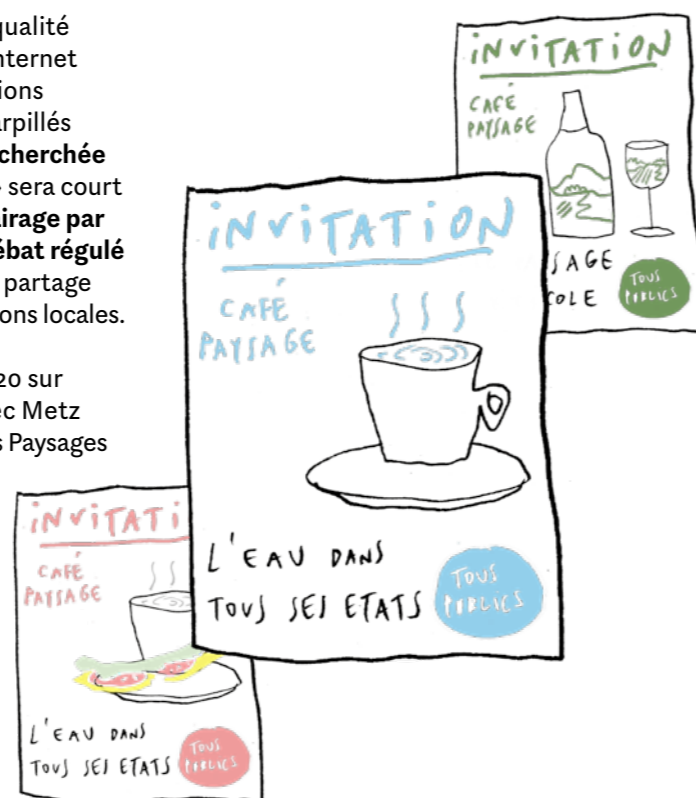 qualité
nternet
ions
arpillés
cherchée
sera court
irage par
ébat régulé
partage
ons locales.
20 sur
ec Metz
s Paysages
iNViTATiON
CAFÉ
PAYSAGE
SAGE
COLE
TOUS
PUBLICS
iNViTATiON
CAFÉ
PAYSAGE
L'EAU DANS
TOUS SES ETATS
TOUS
PUBLICS
iNViTATi
CAFÉ
PAYSAGE
L'EAU DANS
TOUS SES ETATS
TOUS
PUBLICS